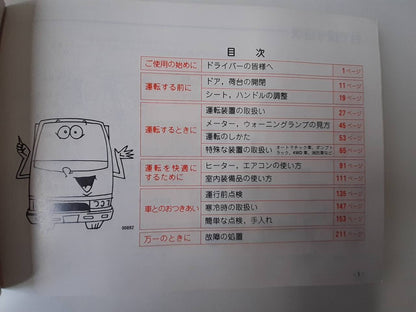 目次
ご使用の始めに ドライバーの皆様へ 1ページ
運転する前に ドア，荷台の開閉 11ページ
シート，ハンドルの調整 19ページ
運転するときに 運転装置の取扱い 27ページ
メーター，ウォーニングランプの見方 45ページ
運転のしかた 53ページ
特殊な装置の取扱い オートマチック車，ダンプトラック，4WD車，消防車など 65ページ
運転を快適にするために ヒーター，エアコンの使い方 91ページ
室内装備品の使い方 111ページ
車とのおつきあい 運行前点検 135ページ
寒冷時の取扱い 147ページ
簡単な点検，手入れ 153ページ
万一のときに 故障の処置 211ページ
00882